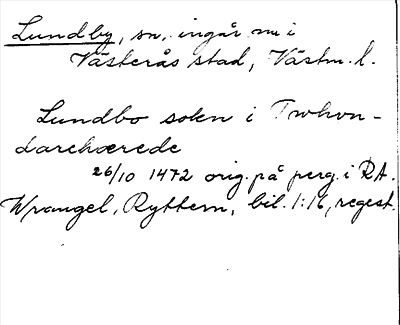 Lundby, sn, ingår nu i
Västerås stad, Västm. l.
Lundbo soken i Twhvn-
darehærede
26/10 1472 orig. på perg. i RA.
Wrangel, Ryttern, bil. 1:16, regest.